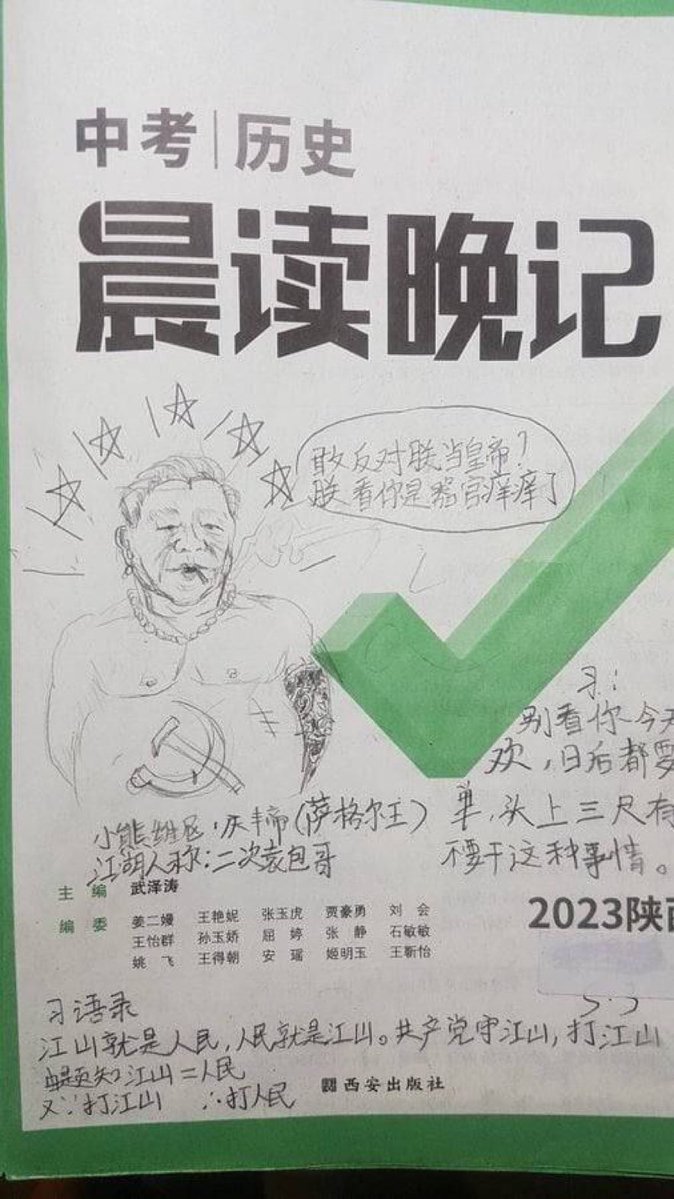 中考 历史
晨读晚记
敢反对朕当皇帝?
朕看你是器官痒痒了
习:
别看你今天
欢,日后都要
单,头上三尺有
不要干这种事情。
小熊维尼:庆丰帝(萨格尔王)
江湖人称:二次袁包哥
主 编 武泽涛
编 委 姜二嫚 王艳妮 张玉虎 贾豪勇 刘会
王怡群 孙玉娇 屈婷 张静 石敏敏
姚飞 王得朝 安瑶 姬明玉 王靳怡
2023陕西
习语录
江山就是人民,人民就是江山。共产党守江山,打江山
由题知江山=人民
又∵打江山 ∴打人民
西安出版社